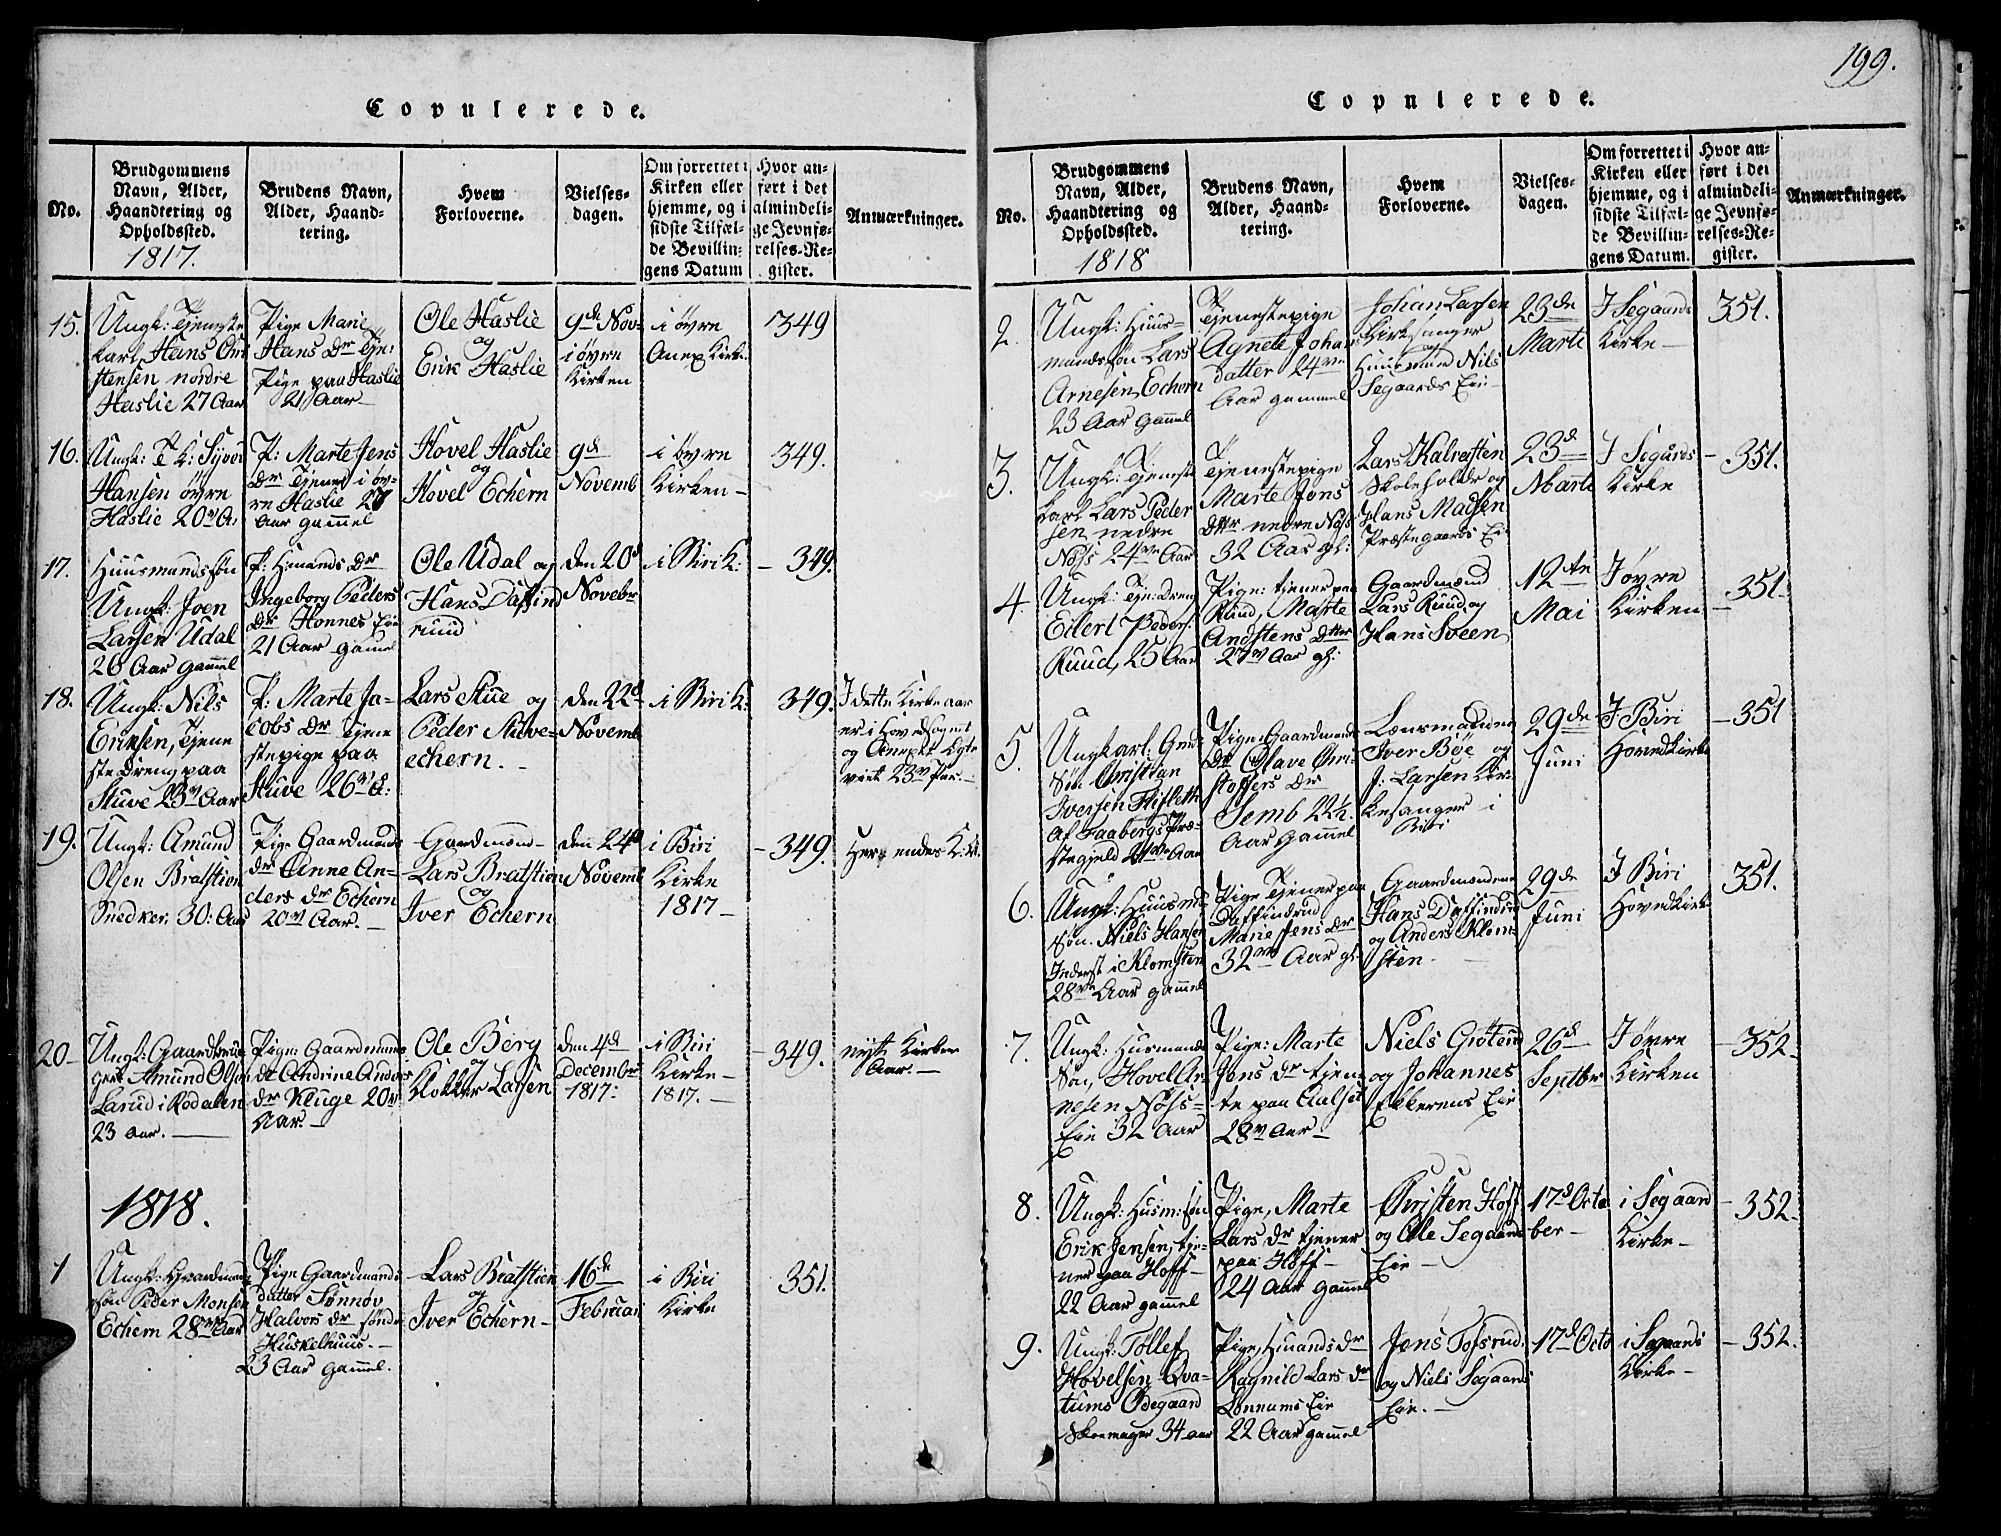 199.
Copulerede.
No.
Brudgommens
Navn, Alder,
Haandtering og
Opholdssted.
1817.
Brudens Navn,
Alder, Haand-
tering.
Hvem
Forloverne.
Vielses-
dagen.
Om forrettet i
Kirken eller
hjemme, og i
sidste Tilfæl-
de Bevillin-
gens Datum
Hvor an-
ført i det
almindeli-
ge Jevnfø-
relses-Re-
gister.
Anmærkninger.
15.
Ungk: Tjeneste
karl, Hans Chri
stensen nordre
Haslie 27 Aar
Pige Marie
Hans Dr Tje:
Pige paa Haslie
21 Aar
Ole Haslie
og
Erik Haslie
9de Nov:
i øvre
Kirken
i øvre
Anex Kirke
349
16.
Ungk: T. K: Syver
Hansen øvre
Haslie 20 A:
P: Marte Jens
Dr Tjener i øv-
re Haslie 27
Aar gammel
Hovel Haslie
og
Hovel Echern
9d
Novemb
i øvre
Kirken
349.
17.
Huusmandssøn
Ungk: Joen
Larsen Udal
26 Aar gammel
P: Hmands Dr
Ingeborg Peders
Dr Honnes Eie
21 Aar gamel
Ole Udal og
Hans Daffind
ruud
den 20d
Novebr
i Biri K:
349.
18.
Ungk: Nils
Eriksen, Tjene
stedreng paa
Stuve 23 Aar
P: Marte Ja-
cobs Dr Tjene
stepige paa
Stuve 26 A:
Lars Stue og
Peder Stuve-
echern.
den 22d
Novemb
i Biri K:
349.
I dette Kirke Aar
er i Hovedsognet
og Anexet Copu-
viet 23 Par.
19.
Ungk: Amund
Olsen Bratstien
Snedker. 30: Aar
Pige Gaardmands
dr Anne An-
ders dr Echern
20 Aar.
Gaardmænd
Lars Bratstien
og
Iver Echern
den 24d
Novemb
i Biri
Kirke
1817
349.
Her endes K:
20
Ungk: Gaardbru
ger Amund Olsen
Larud i Rodalen
23 aar.
Pige: Gaardmands
dr Andrine Anders
dr Kluge 20
Aar.
Ole Berg
og
Klokker Larsen
den 4d
December
1817:
i Biri
Kirke
1817.
349.
nyt Kirke
Aar.
1818.
1
Ungk: Gaardmands
søn Peder Monsen
Echern 28 Aar
Pige Gaardmands
datter Sønnøv
Halvors dr søndr
Huskelhuus.
23 Aar gammel.
Lars Bratstien
og
Iver Echern
16d
Februar
i Biri
Kirke
351.
Copulerede.
No.
Brudgommens
Navn, Alder,
Haandtering og
Opholdssted.
1818
Brudens Navn,
Alder, Haand-
tering.
Hvem
Forloverne.
Vielses-
dagen.
Om forrettet i
Kirken eller
hjemme, og i
sidste Tilfæl-
de Bevillin-
gens Datum.
Hvor an-
ført i det
almindeli-
ge Jevnfø-
relses-Re-
gister.
Anmærkninger.
2.
Ungk: Huus-
mandssøn Lars
Arnesen, Echern
23 Aar gammel
Tjenestepige
Agnete Johans
datter 24
Aar gammel
Johan Larsen
Kirkesanger
og
Huusmand Nils
Segaards Eie
23de
Marti
I Segaards
Kirke
351.
3.
Ungk: Tjeneste
karl Lars Peder
sen nedre
Nøss 24 Aar
Tjenestepige
Marte Jens
Dtter nedre Nøss
32 Aar gl:
Lars Kalrasten
Skoleholder og
Hans Madsen
Præstegaards Ei
23d
Marti
I Segaards
Kirke
351.
4
Ungk: Tje: Dreng
Eilert Peders:
Ruud, 25 Aar
Pige: tjener paa
Ruud, Marte
Andstens Dtter
27 Aar gl:
Gaardmænd
Lars Ruud og
Hans Sveen
12te
Mai
I øvre
Kirken
351.
5.
Ungkarl: Gmd
Søn Christian
Iversen Flifleth
af Faabergs Præ-
stegield 21 Aar
Pige: Gaardmands
Dr Olave Chri-
stoffers Dr
Semb 22½
Aar gammel
Lænsmanden
Iver Bøe og
J: Larsen Kir-
kesanger i
Biri
29de
Juni
I Biri
Hovedkirke
351
6.
Ungk: Huusmd
Søn. Niels Hansen
Inderst i Klomsten
28 Aar gammel
Pige Tjener paa
Daffindrud
Marie Jens Dr
32 Aar gl
Gaardmændene
Hans Daffindrud
og Anders Klom-
sten.
29de
Juni
I Biri
Hovedkirke
351.
7.
Ungk: Husmands
Søn, Hovel Ar-
nesen Nøss-
Eie 32 Aar
Pige: Marte
Jens dr tjen-
te paa Aulset
28 Aar
Niels Grøterud
og Johannes
Ekkerens Eie
26d
Septbr
I øvre
Kirken
352
8.
Ungk: Husm: søn
Erik Jensen, tje-
ner paa Hoff
22 Aar gammel
Pige, Marte
Lars dr tjener
paa Hoff
24 Aar gammel
Christen Hoff
og Ole Segaards
Eie
17d Octo
ber
i Segaard
Kirke
352.
9.
Ungk: Tollef
Hovelsen Qva-
tums Ødegaard
Skoemager 34 aar
Pige, Hmands dr
Ragnild Lars dr
Lønnums Eie
22 Aar gammel
Jens Tofsrud
og Niels Segaards
Eie.
17d Octo
i Segaards
Kirke
352.